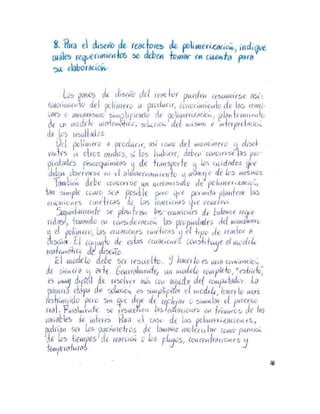 8. Para el diseño de reactores de polimerización, indique
cuáles requerimientos se deben tomar en cuenta para
su elaboración
Los pasos de diseño del reactor pueden resumirse así:
conocimiento del polímero a producir, conocimiento de las reac-
ciones o mecanismo simplificado de polimerización, planteamiento
de un modelo matemático, solución del mismo e interpretación
de los resultados.
Del polímero a producir, así como del monómero y disol-
ventes u otros medios, si los hubiere, deben conocerse las pro-
piedades fisicoquímicas y de transporte y los cuidados que
deben observarse en el almacenamiento y manejo de los mismos.
También debe conocerse un mecanismo de polimerización,
tan simple como sea posible pero que permita plantear las
ecuaciones cinéticas de las reacciones que ocurren.
Seguidamente se plantean las ecuaciones de balance reque-
ridas, tomando en consideración las propiedades del monómero
y el polímero, las ecuaciones cinéticas y el tipo de reactor a
diseñar. El conjunto de estas ecuaciones constituye el modelo
matemático de diseño.
El modelo debe ser resuelto. Y hacerlo es una combinación
de ciencia y arte. Generalmente, un modelo completo, "estricto",
es muy difícil de resolver aún con ayuda del computador. La
primera etapa de solución es simplificar el modelo, hacerlo más
restringido pero sin que deje de reflejar o simular el proceso
real. Finalmente se resuelven las ecuaciones en términos de las
variables de interés. Para el caso de las polimerizaciones,
podrían ser los parámetros de tamaño molecular como función
de los tiempos de reacción o los flujos, concentraciones y
temperaturas.